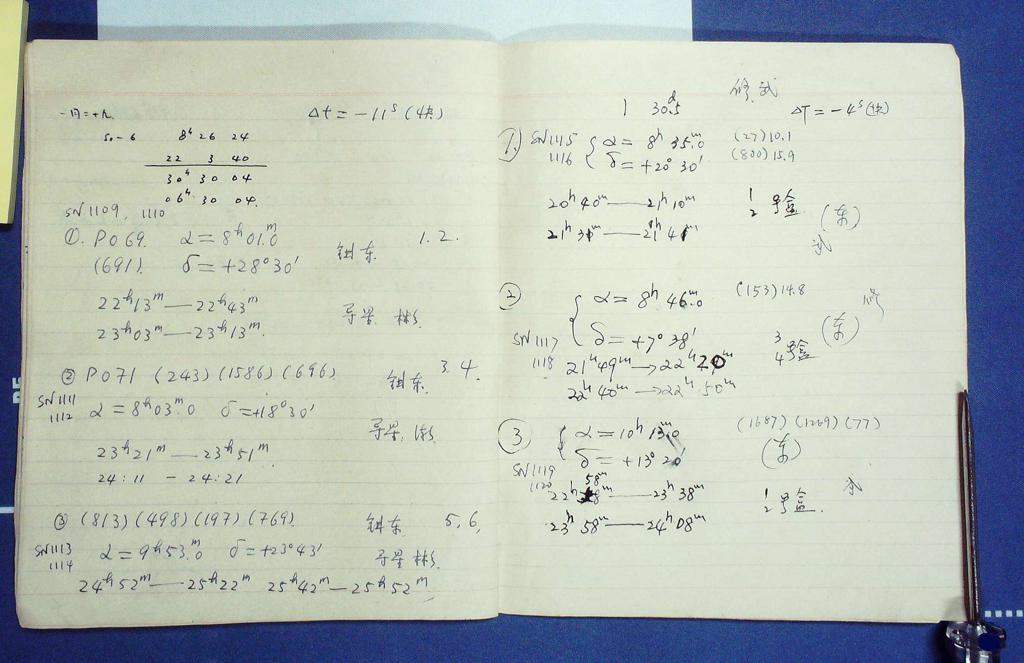 Δt = -11ˢ (快)
50-6 8ʰ 26 24
22 3 40
30ʰ 30 04
06ʰ 30 04.
SN1109, 1110
①. P069. α = 8ʰ01ᵐ.0 1. 2.
(691). δ = +28°30′
22ʰ13ᵐ — 22ʰ43ᵐ 导星.
23ʰ03ᵐ — 23ʰ13ᵐ.
② P071 (243) (1586) (696) 3. 4.
SN1111
1112 α = 8ʰ03ᵐ.0 δ = +18°30′
导星.
23ʰ21ᵐ — 23ʰ51ᵐ
24:11 - 24:21
③ (813) (498) (197) (769). 5, 6,
SN1113
1114 α = 9ʰ53ᵐ.0 δ = +23°43′ 导星
24ʰ52ᵐ — 25ʰ22ᵐ 25ʰ42ᵐ — 25ʰ52ᵐ
修武
1 30ᵈ.5 ΔT = -4ˢ (快)
①. SN1115 α = 8ʰ 35ᵐ.0 (27) 10.1
1116 δ = +20° 30′ (800) 15.9
20ʰ 40ᵐ — 21ʰ 10ᵐ 1 2 号盒 (东)
21ʰ 31ᵐ — 21ʰ 41ᵐ 武
② α = 8ʰ 46ᵐ.0 (153) 14.8 修
SN1117 δ = +7° 38′ 3 4 号盒 (东)
1118 21ʰ 49ᵐ → 22ʰ 20ᵐ
22ʰ 40ᵐ → 22ʰ 50ᵐ
③ α = 10ʰ 13ᵐ.0 (1687) (1269) (77)
SN1119 δ = +13° 20′ (东)
1120 22ʰ 58ᵐ — 23ʰ 38ᵐ 1 2 号盒. 武
23ʰ 58ᵐ — 24ʰ 08ᵐ